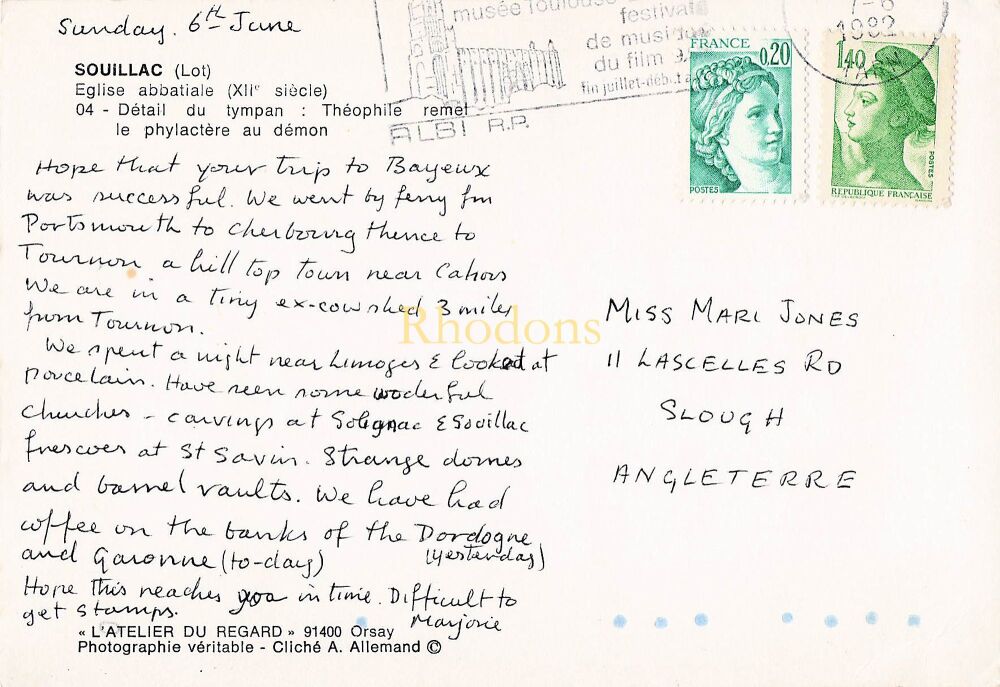 Sunday. 6th June
SOUiLLAC (Lot)
Eglise abbatiale (XIIe siècle)
04 - Détail du tympan : Théophile remet
le phylactère au démon
musée Toulouse
festivals
de musique
du film
fin juillet-début
ALBI R.P.
7-6
1982
TARN
FRANCE
0,20
POSTES
1,40
POSTES
REPUBLIQUE FRANÇAISE
Hope that your trip to Bayeux
was successful. We went by ferry fm
Portsmouth to Cherbourg thence to
Tournon, a hill top town near Cahors
We are in a tiny ex-cowshed 3 miles
from Tournon.
We spent a night near Limoges & looked at
porcelain. Have seen some woderful
churches - carvings at Solignac & Souillac
frescoes at St Savin. Strange domes
and barrel vaults. We have had
coffee on the banks of the Dordogne
and Garonne (to-day) (yesterday)
Hope this reaches you in time. Difficult to
get stamps.
Marjorie
MISS MARI JONES
11 LASCELLES RD
SLOUGH
ANGLETERRE
Rhodons
« L'ATELIER DU REGARD » 91400 Orsay
Photographie véritable - Cliché A. Allemand ©